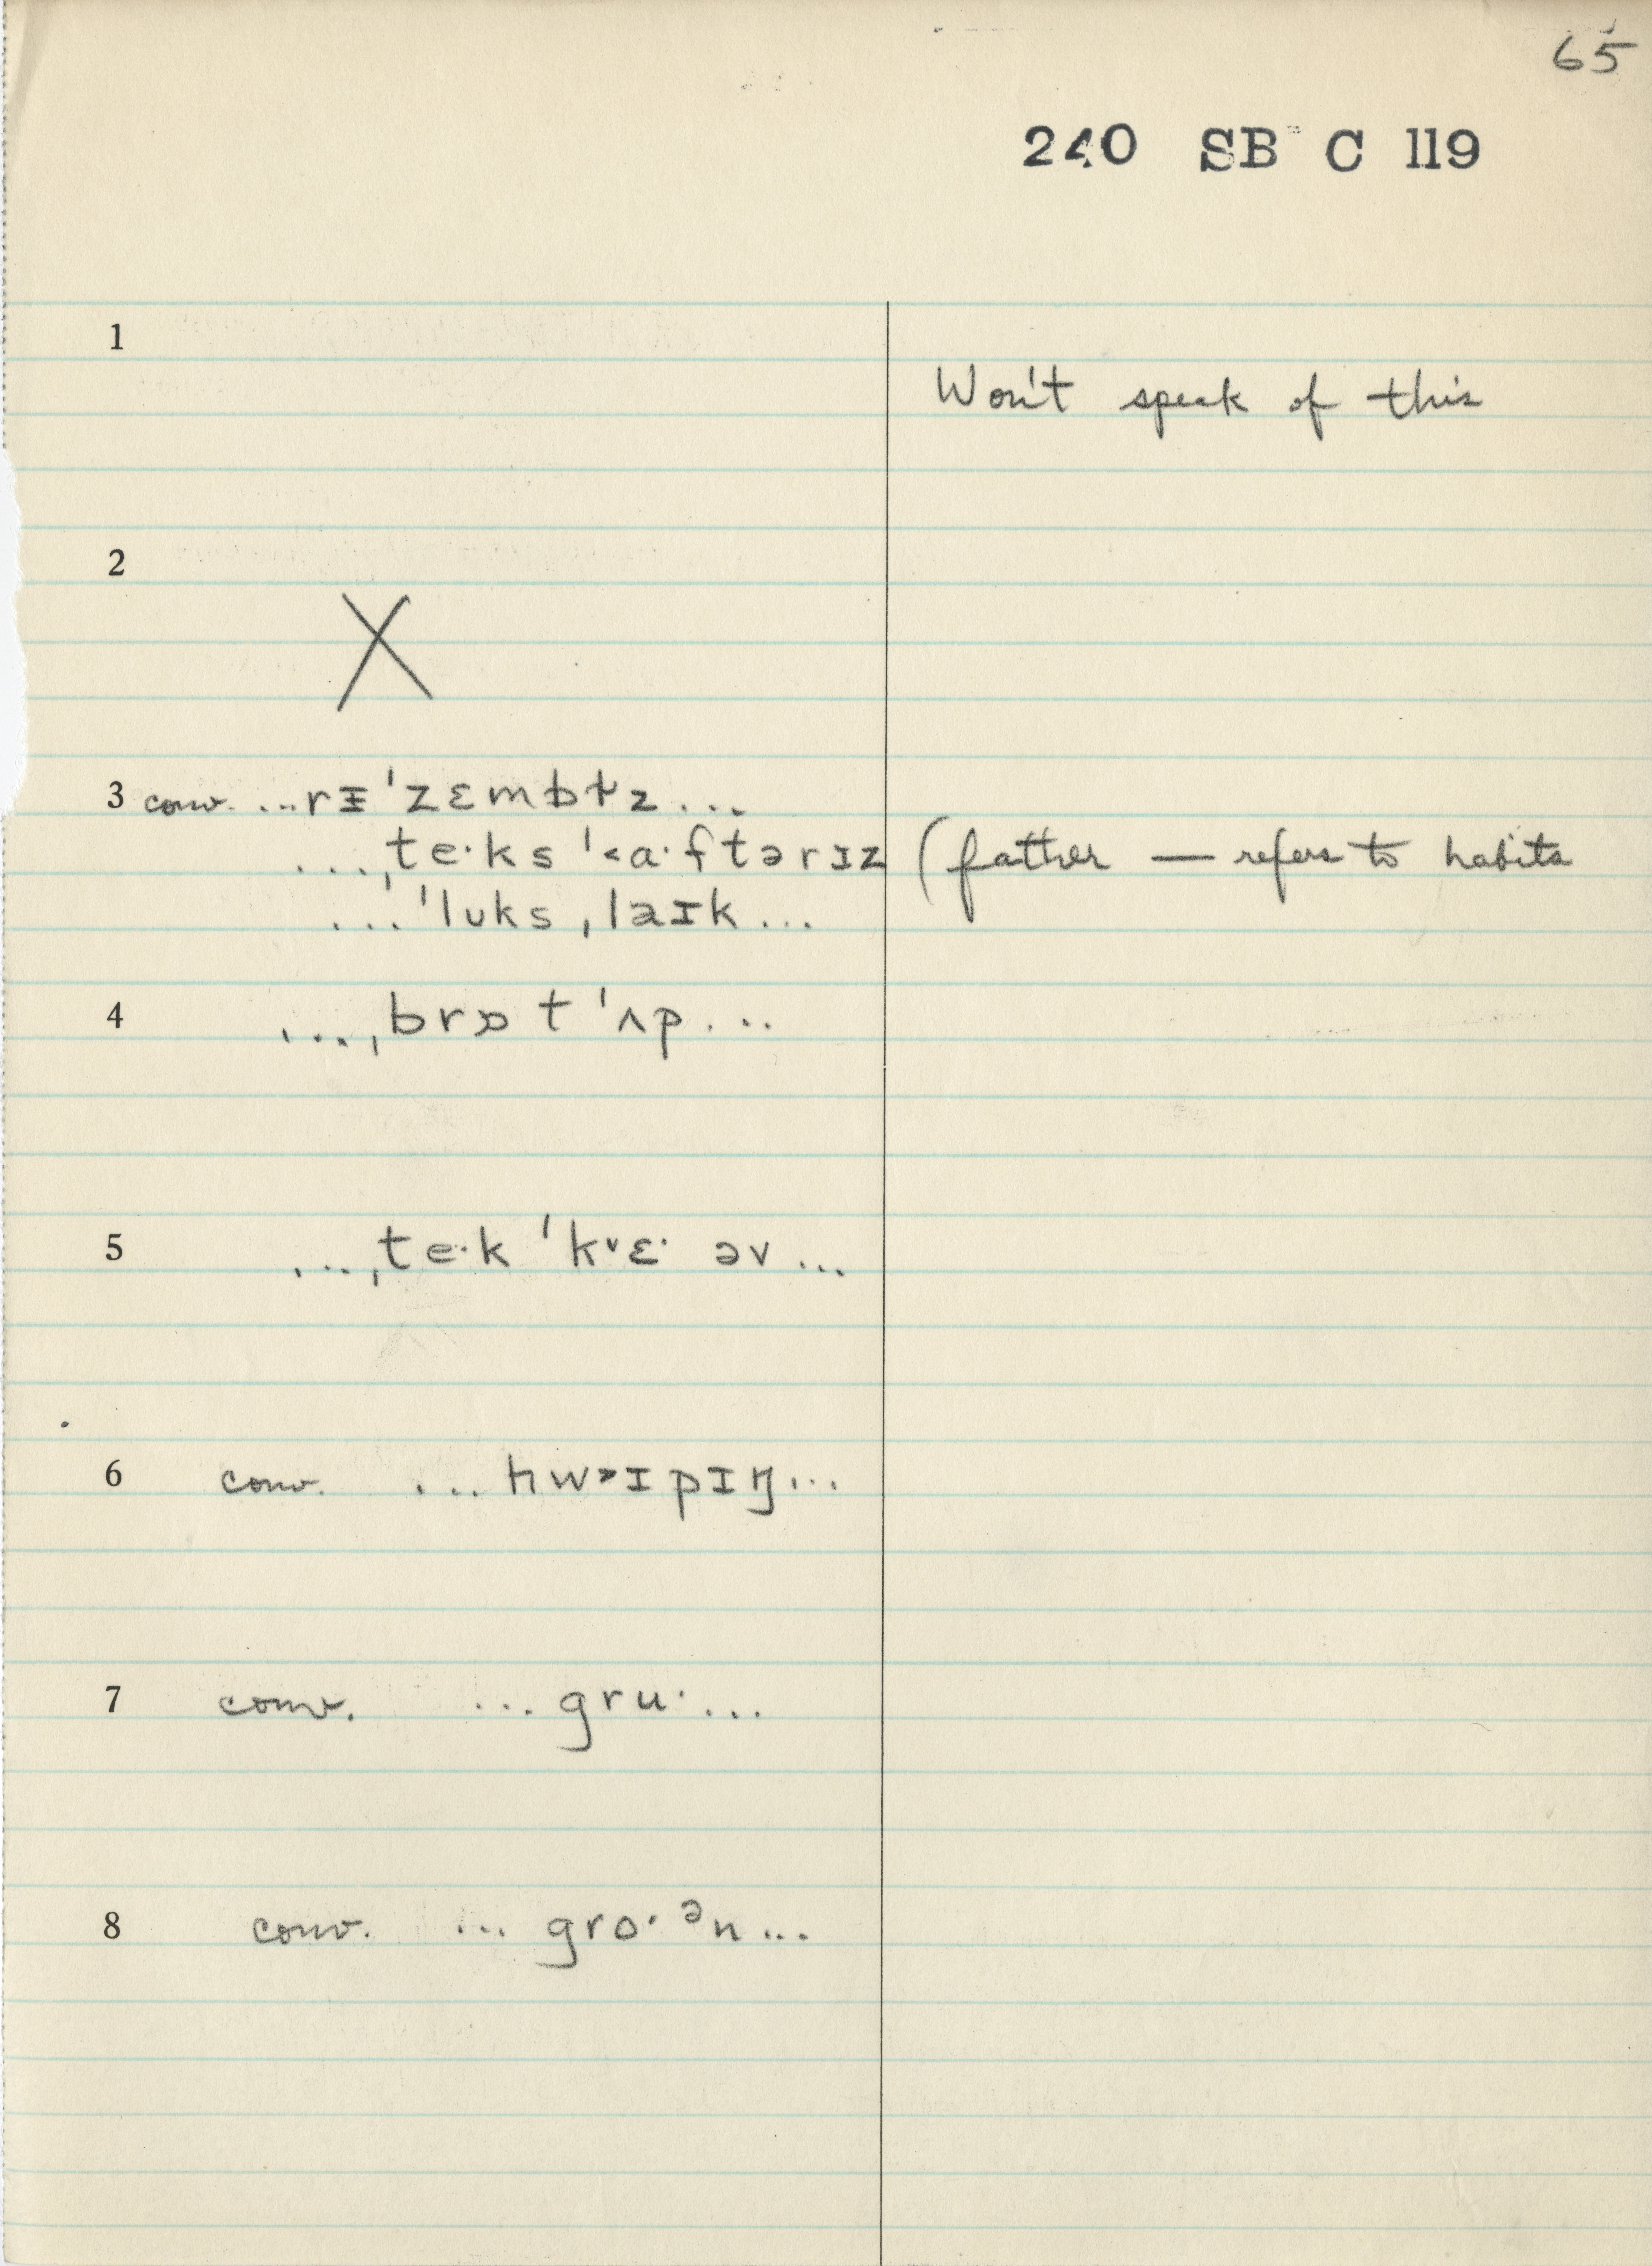 65
240 SB C 119
1
Won't speak of this
2
X
3 conv. ...rᵻˈzɛmbɫz...
...ˌte·ks ˈ˂a·ftərɪz (father — refers to habits
...ˈlʊks ˌlaɪk...
4 ...ˌbrɒt ˈʌp...
5 ...ˌte·k ˈk˅ɛ· əv...
6 conv. ...ʍ˃ɪpɪŋ...
7 conv. ...gru·...
8 conv. ...gro·ᵊn...